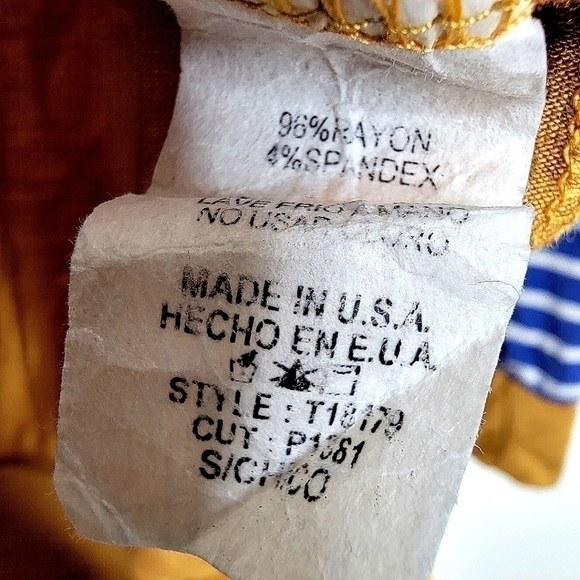 96% RAYON
4% SPANDEX
LAVE FRIO A MANO
NO USAR
MADE IN U.S.A.
HECHO EN E.U.A.
STYLE : T18179
CUT : P1381
S/CHICO